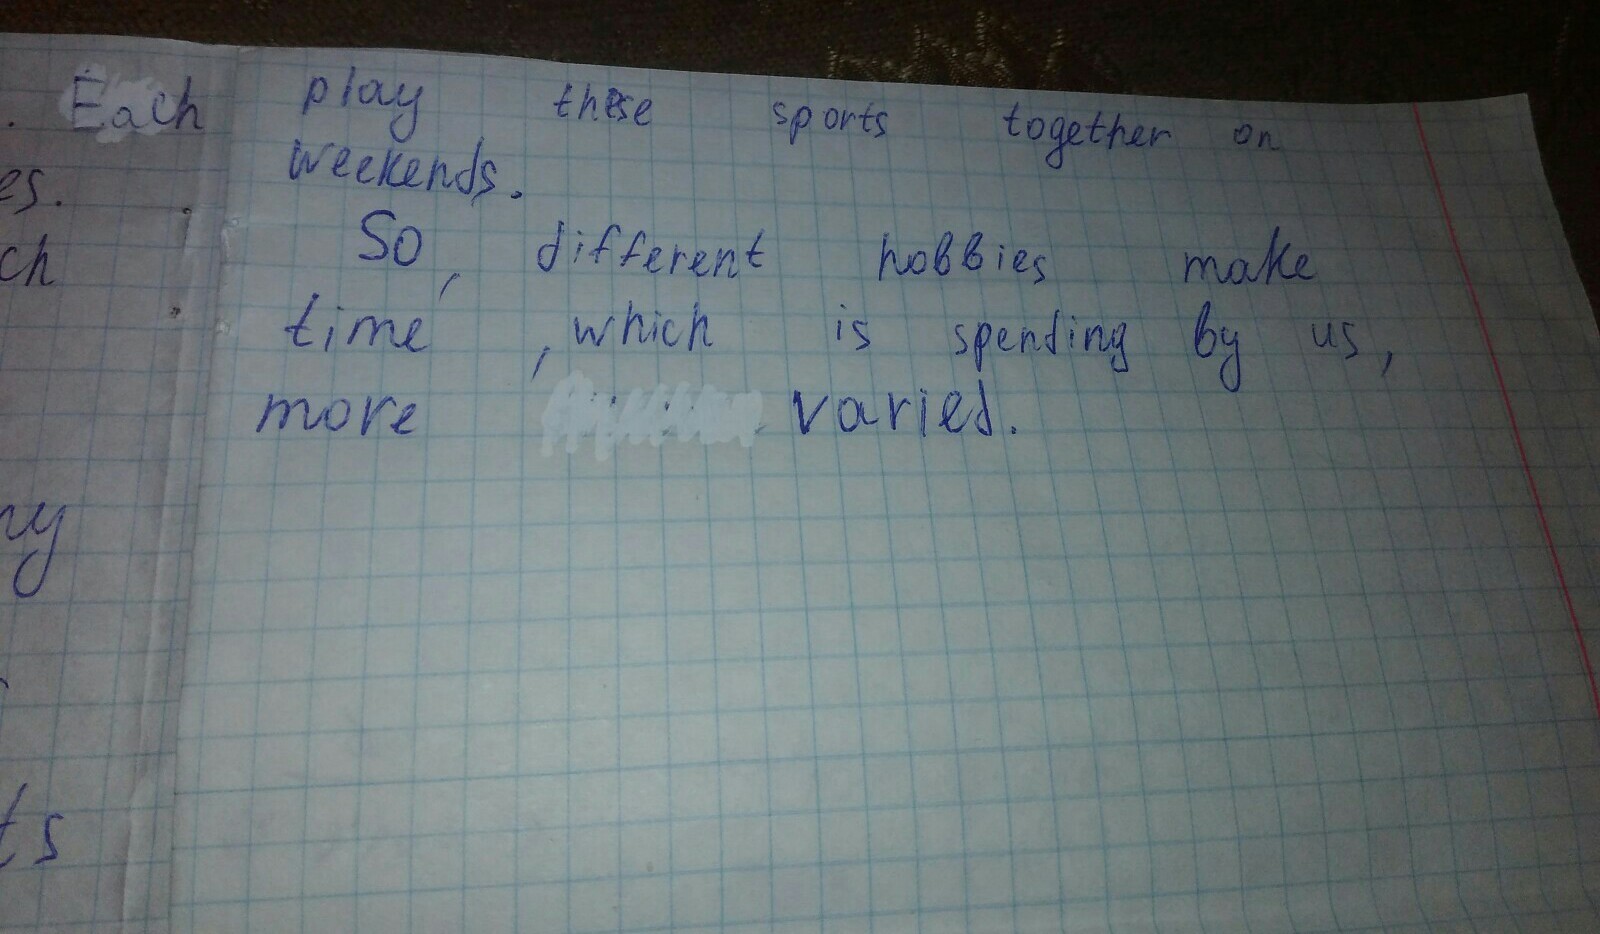 . Each
es.
ch
ny
ts
play these sports together on
weekends.
So, different hobbies make
time ,which is spending by us,
more varied.